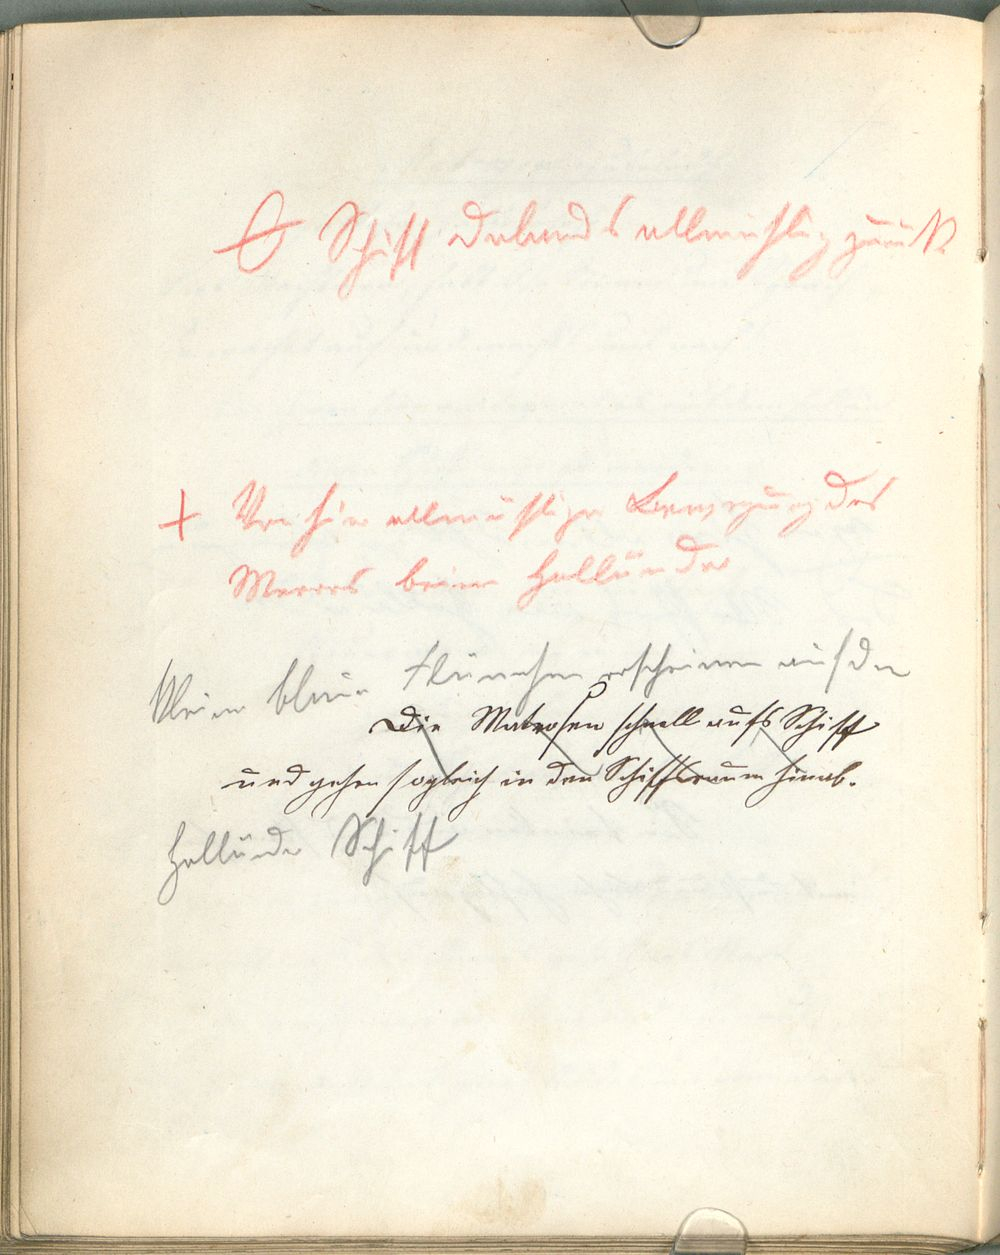 Schiff Dalands allmählig zurück
+ Von hier allmählige Bewegung des
Meeres beim Holländer
Kleine blaue Flämchen erscheinen auf den
Die Matrosen schnell aufs Schiff
und gehen sogleich in den Schiffsraum hinab.
Holländer Schiff